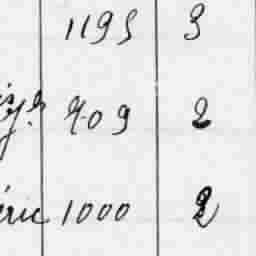 1195 3
709 2
éric 1000 2